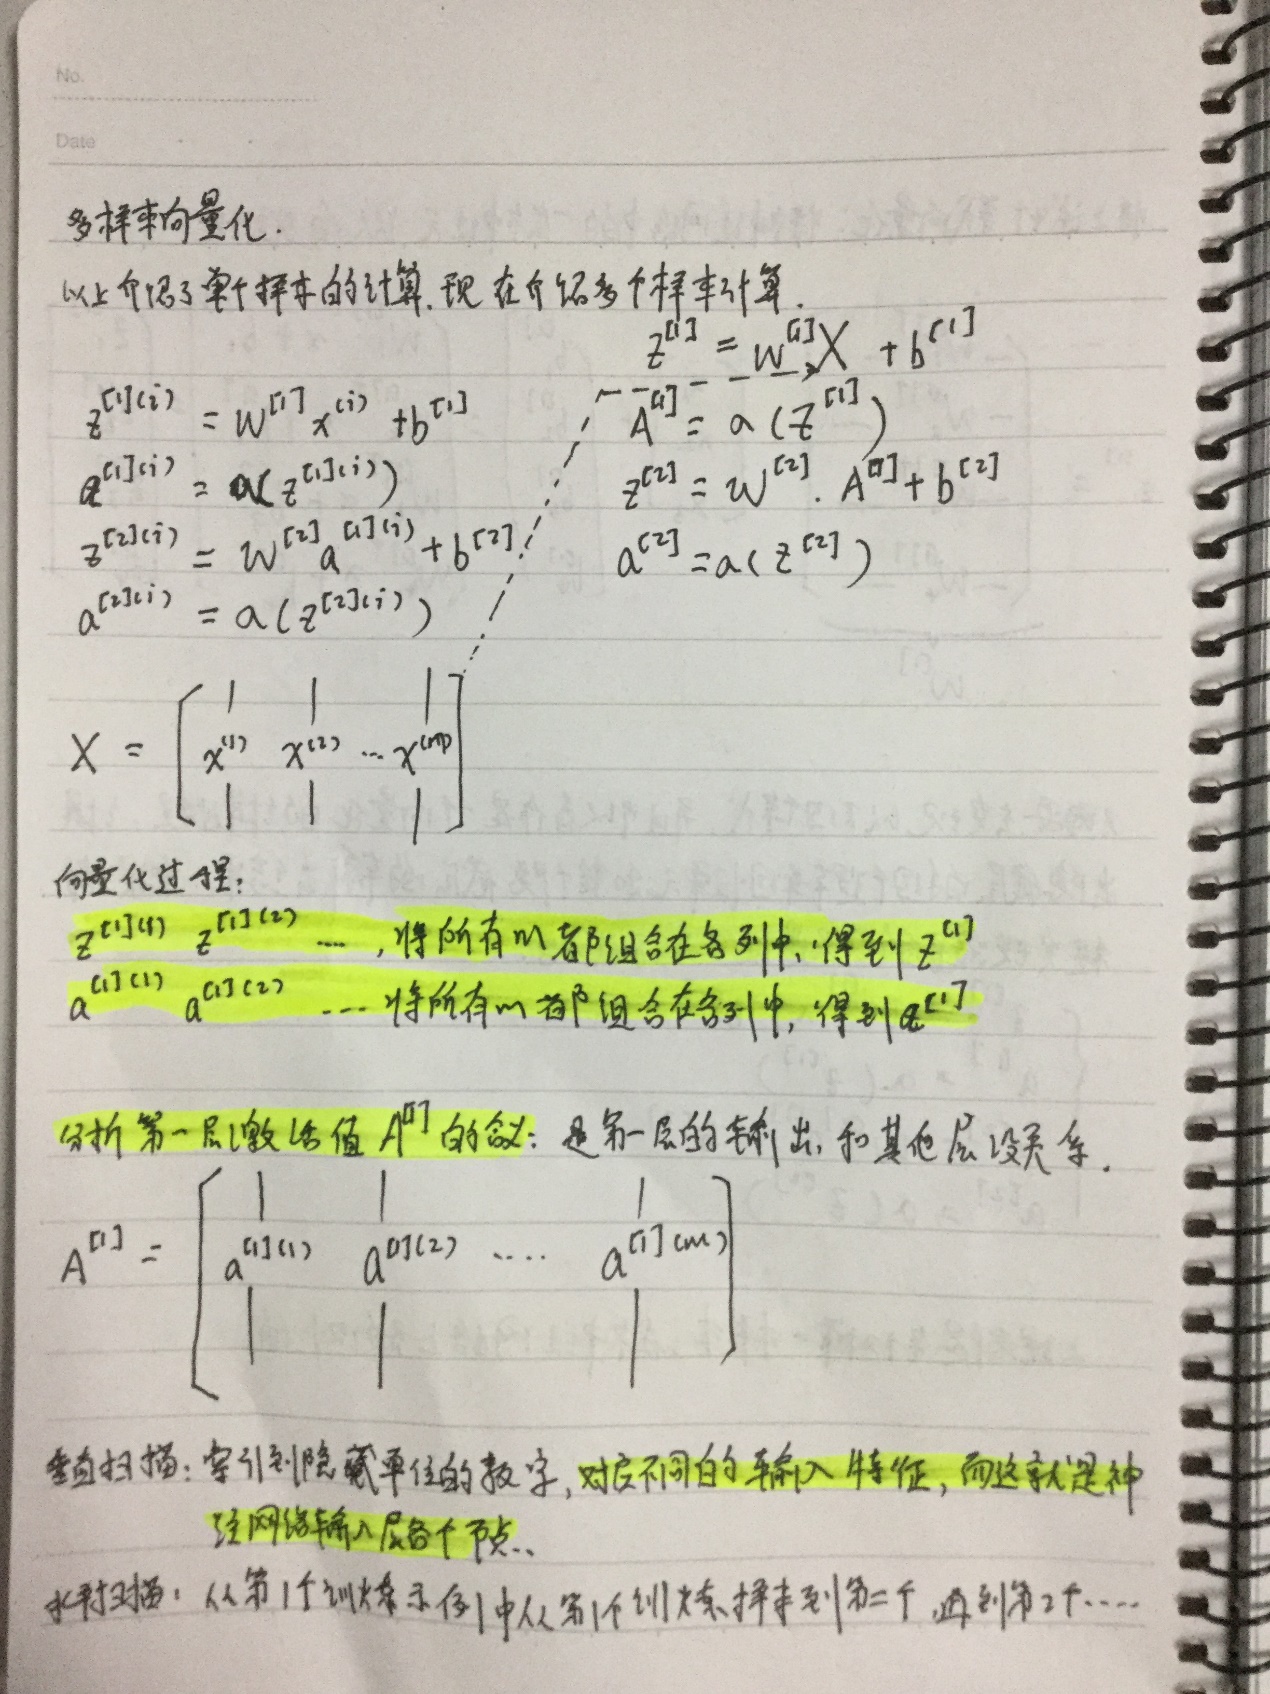 No.
Date
多样本向量化.
以上介绍了单个样本的计算.现在介绍多个样本计算.
z^[1](i) = W^[1] x^(i) + b^[1]
a^[1](i) = a(z^[1](i))
z^[2](i) = W^[2] a^[1](i) + b^[2]
a^[2](i) = a(z^[2](i))
z^[1] = W^[1] X + b^[1]
A^[1] = a(Z^[1])
z^[2] = W^[2] · A^[1] + b^[2]
a^[2] = a(z^[2])
X = [ x^(1) x^(2) ... x^(m) ]
向量化过程:
z^[1](1) z^[1](2) ...,将所有以都组合在各列中,得到z^[1]
a^[1](1) a^[1](2) ...将所有以都组合在各列中,得到a^[1]
分析第一层激活值A^[1]的含义:是第一层的输出,和其他层没关系.
A^[1] = [ a^[1](1) a^[1](2) .... a^[1](m) ]
垂直扫描:索引到隐藏单位的数字,对应不同的输入特征,而这就是神
经网络输入层各个节点..
水平扫描:从第1个训练示例中从第1个训练样本到第二个,再到第2个....